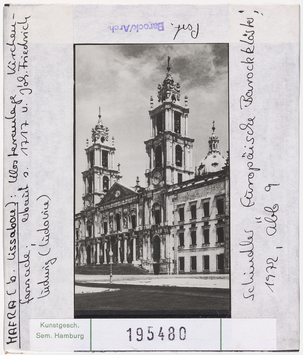 Port.
Barock/Arch.
MAFRA (b. Lissabon): Klosteranlage Kirchen-
fassade; erbaut s. 1717 v. Joh. Friedrich
Ludwig (Ludovice)
Schindler "Europäische Barockklöster"
1972, Abb 9
Kunstgesch.
Sem. Hamburg
195480